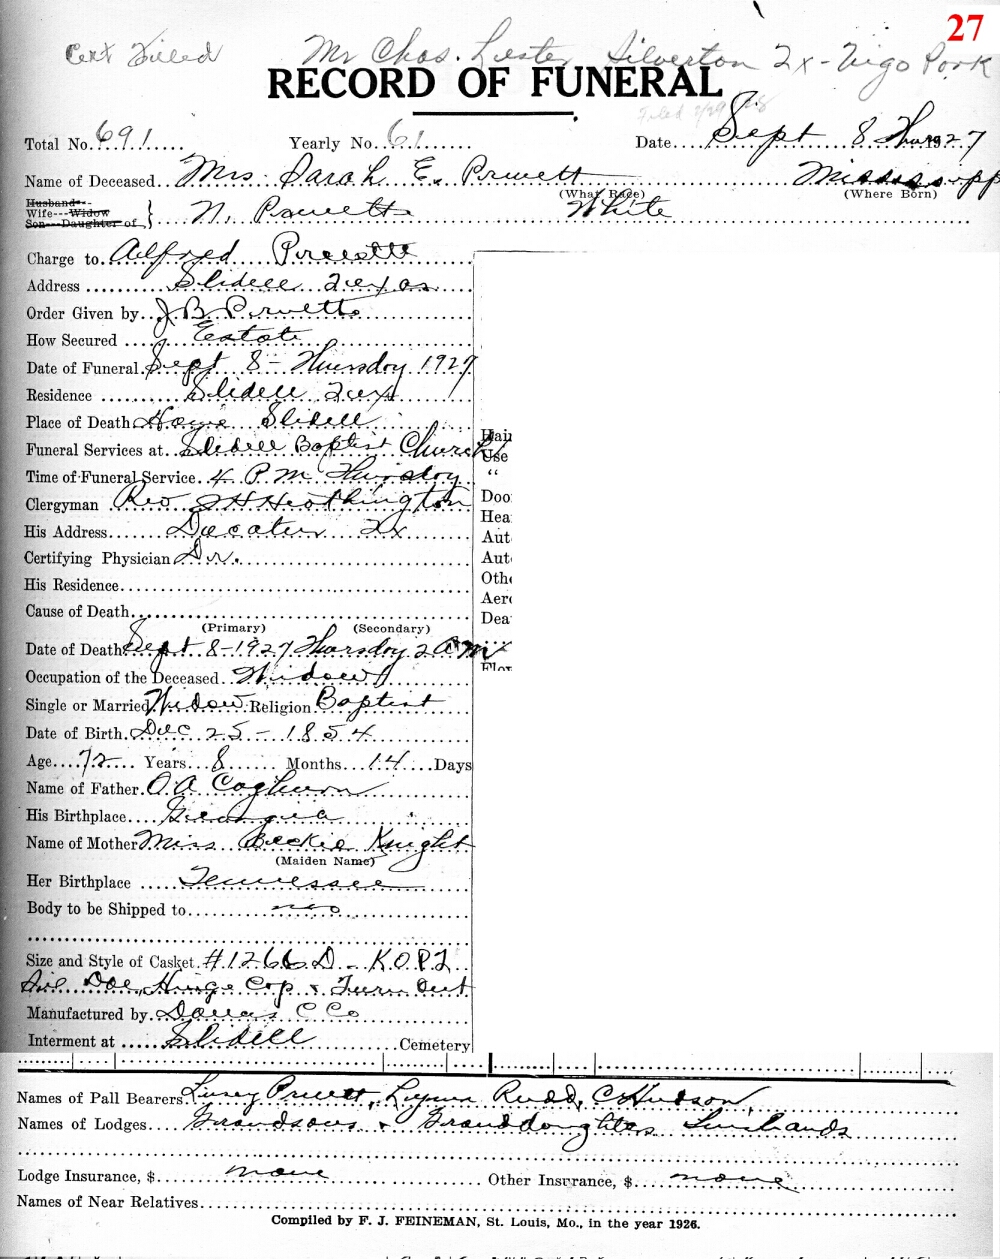 27
Cert Filed Mr Chas. Lester Silverton Tx - Vigo Park
RECORD OF FUNERAL
Filed 9/29
Total No. 691 Yearly No. 61 Date Sept 8 Thurs 1927
Name of Deceased Mrs Sarah E. Pruett Mississipp
(What Race) (Where Born)
Husband---
Wife---Widow
Son---Daughter of } N. Pruett White
Charge to Alfred Pruett
Address Slidell Texas
Order Given by J B Pruett
How Secured Estate
Date of Funeral Sept 8 - Thursday 1927
Residence Slidell Tex
Place of Death Home Slidell
Funeral Services at Slidell Baptist Church
Time of Funeral Service 4 P.M. Thursday
Clergyman Rev J H Heathington
His Address Decatur Tx
Certifying Physician Dr.
His Residence
Cause of Death
(Primary) (Secondary)
Date of Death Sept 8-1927 Thursday 2 a m
Occupation of the Deceased Widow
Single or Married Widow Religion Baptist
Date of Birth Dec 25 - 1854
Age 72 Years 8 Months 14 Days
Name of Father O. A. Coghurn
His Birthplace Georgia
Name of Mother Miss Beckie Knight
(Maiden Name)
Her Birthplace Tennessee
Body to be Shipped to no
Size and Style of Casket #1266 D - K.O.P.L
Sil Doe, Hinge Cap & Turn Out
Manufactured by Dallas C Co
Interment at Slidell Cemetery
Hair
Use
"
Doo
Hea
Aut
Aut
Oth
Aer
Dea
Flow
Names of Pall Bearers Pruett, Rudd, C Hudson,
Names of Lodges Grandsons & Granddoughters
Lodge Insurance, $ none Other Insurance, $ none
Names of Near Relatives
Compiled by F. J. FEINEMAN, St. Louis, Mo., in the year 1926.